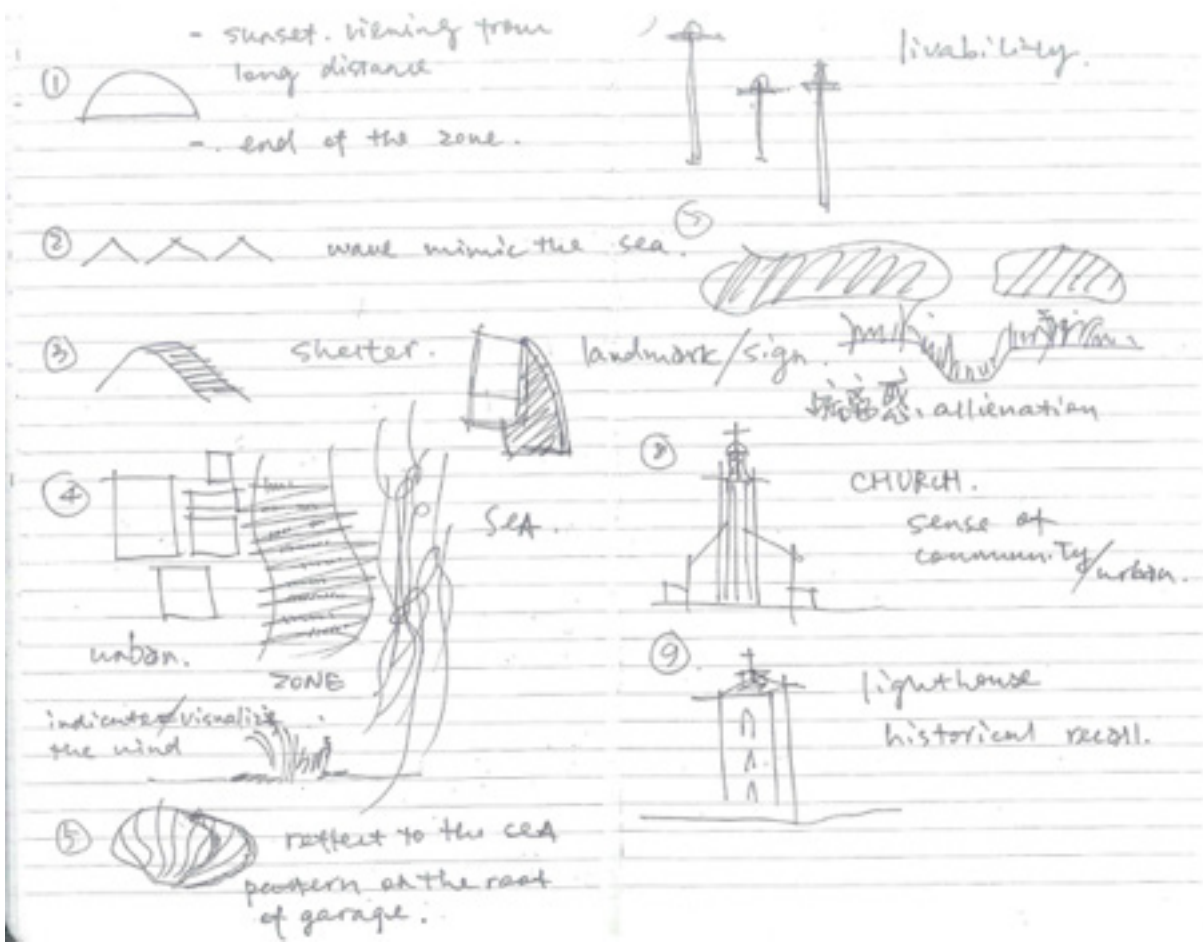 ①
- sunset. viening from
long distance
-. end of the zone.
② wave mimic the sea.
③ shelter.
④
SEA.
urban.
ZONE
indicate/visualize
the wind
⑤ reflect to the sea
pattern on the roof
of garage.
livability.
landmark/sign.
allienation
⑧ CHURCH.
sense of
community/urban.
⑨ lighthouse
historical recall.